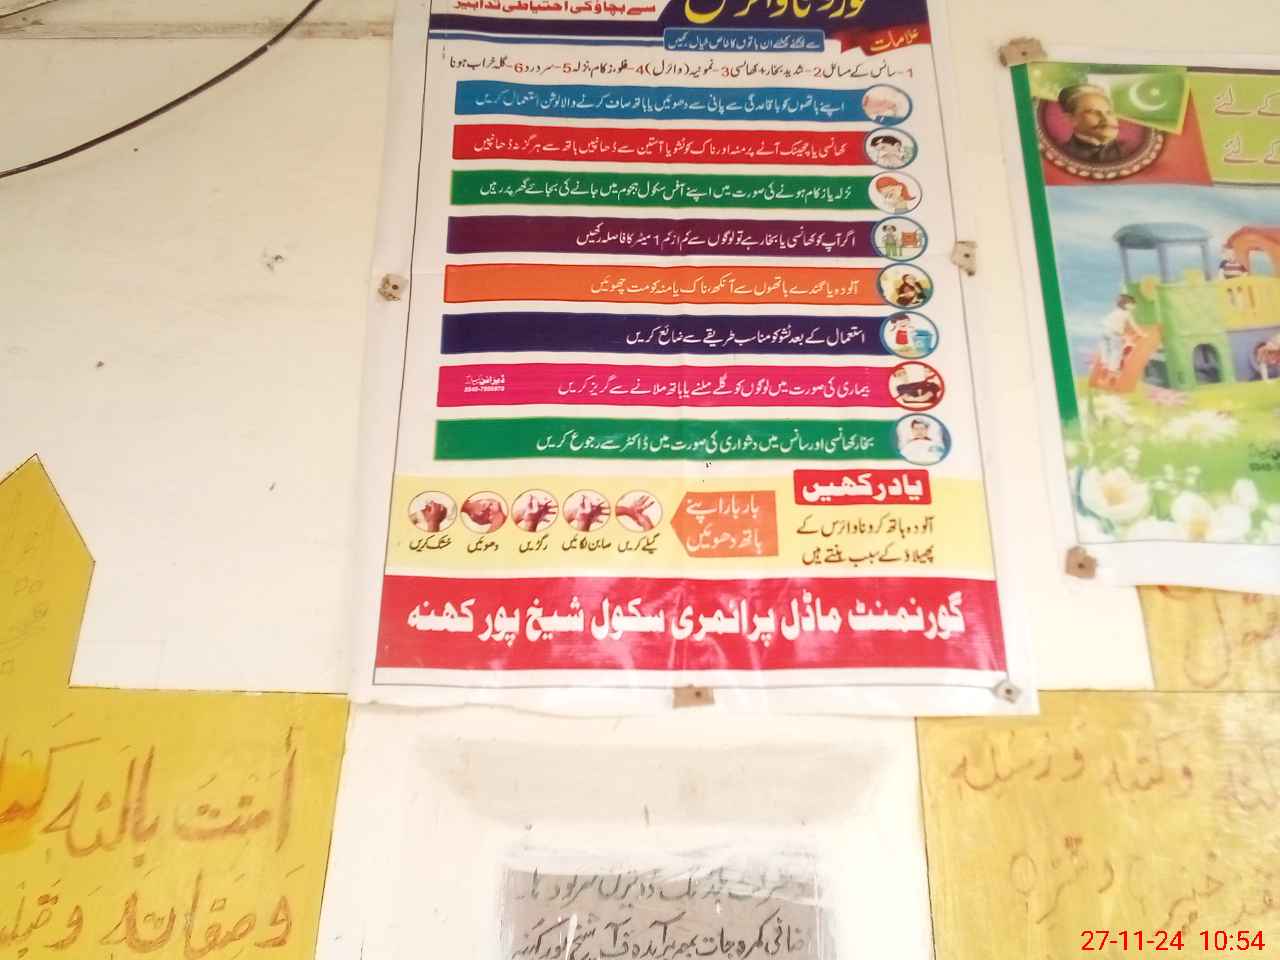 کورونا وائرس
سے بچاؤ کی احتیاطی تدابیر
سے نمٹنے کیلئے ان باتوں کا خاص خیال رکھیں
علامات
1- سانس کے مسائل 2- شدید بخار + کھانسی 3- نمونیہ (وائرل) 4- فلو، زکام، نزلہ 5- سر درد 6- گلہ خراب ہونا
اپنے ہاتھوں کو باقاعدگی سے پانی سے دھوئیں یا ہاتھ صاف کرنے والا لوشن استعمال کریں
کھانسی یا چھینک آنے پر منہ اور ناک کو ٹشو یا آستین سے ڈھانپیں ہاتھ سے ہرگز نہ ڈھانپیں
نزلہ یا زکام ہونے کی صورت میں اپنے آفس سکول ہجوم میں جانے کی بجائے گھر پر رہیں
اگر آپ کو کھانسی یا بخار ہے تو لوگوں سے کم از کم 1 میٹر کا فاصلہ رکھیں
آلودہ یا گندے ہاتھوں سے آنکھ، ناک یا منہ کو مت چھوئیں
استعمال کے بعد ٹشو کو مناسب طریقے سے ضائع کریں
بیماری کی صورت میں لوگوں کو گلے ملنے یا ہاتھ ملانے سے گریز کریں
بخار کھانسی اور سانس میں دشواری کی صورت میں ڈاکٹر سے رجوع کریں
یاد رکھیں
آلودہ ہاتھ کرونا وائرس کے
پھیلاؤ کے سبب بنتے ہیں
بار بار اپنے
ہاتھ دھوئیں
گیلے کریں صابن لگائیں رگڑیں دھوئیں خشک کریں
گورنمنٹ ماڈل پرائمری سکول شیخ پور کھنہ
کے لئے
کے لئے
اٰمَنْتُ بِاللهِ
وَصِفَاتِهٖ وَقَبِلْتُ
وَكُتُبِهٖ وَرُسُلِهٖ
27-11-24 10:54